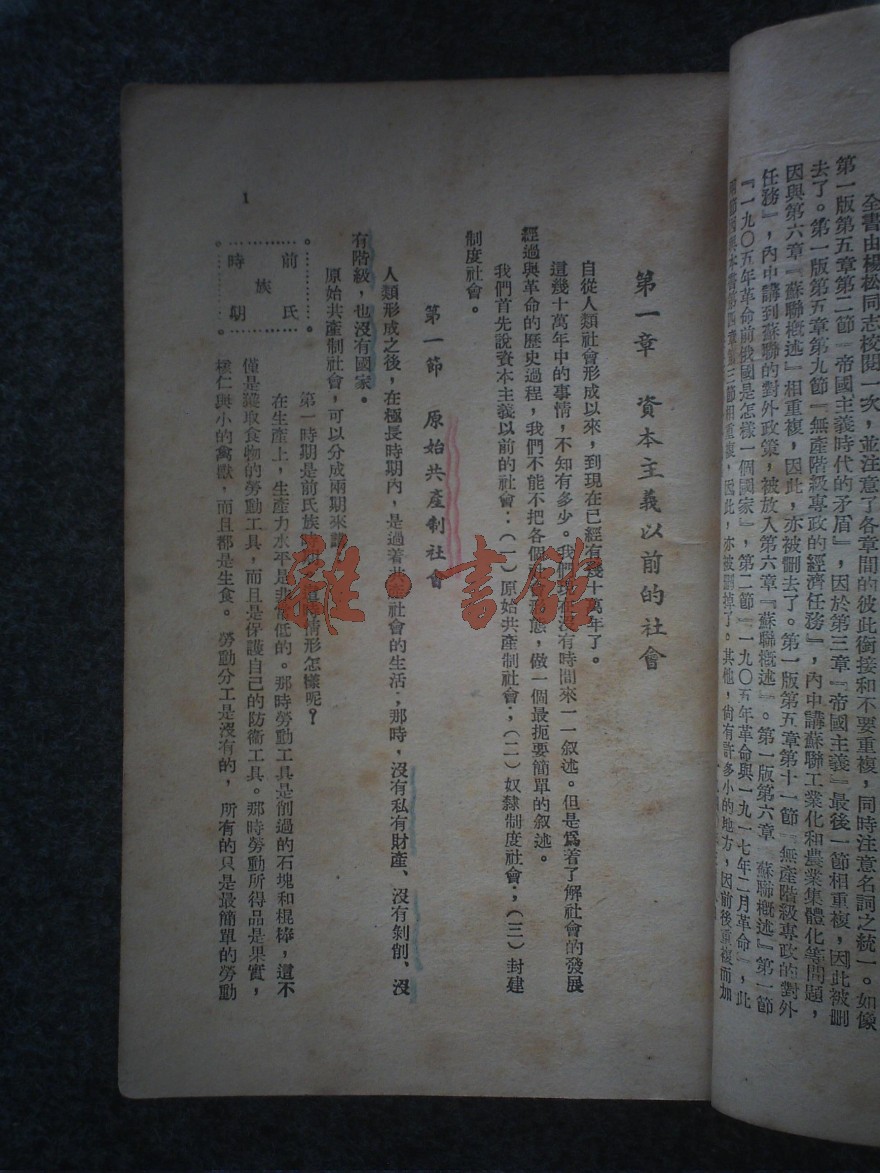 全書由楊松同志校閱一次，並注意了各章間的彼此銜接和不要重複，同時注意名詞之統一。如像
第一版第五章第二節『帝國主義時代的矛盾』，因於第三章『帝國主義』最後一節相重複，因此被刪
去了。第一版第五章第九節『無產階級專政的經濟任務』，內中講蘇聯工業化和農業集體化等問題，
因與第六章『蘇聯概述』相重複，因此，亦被刪去了。第一版第五章第十一節『無產階級專政的對外
任務』，內中講到蘇聯的對外政策，被放入第六章『蘇聯概述』。第一版第六章『蘇聯概述』第一節
『一九〇五年革命前俄國是怎樣一個國家』，第二節『一九〇五年革命與一九一七年二月革命』，此
兩節因與本書第四章第三節相重複，因此，亦被刪掉了。其他，尚有許多小的地方，因前後重複而加
第一章 資本主義以前的社會
自從人類社會形成以來，到現在已經有幾十萬年了。
這幾十萬年中的事情，不知有多少。我們現在沒有時間來一一叙述。但是爲着了解社會的發展
經過與革命的歷史過程，我們不能不把各個社會形態，做一個最扼要簡單的叙述。
我們首先說資本主義以前的社會：（一）原始共產制社會；（二）奴隸制度社會；（三）封建
制度社會。
第一節 原始共產制社會
人類形成之後，在極長時期內，是過着共產社會的生活；那時，沒有私有財產、沒有剝削、沒
有階級，也沒有國家。
原始共產制社會，可以分成兩期來
第一時期是前氏族 情形怎樣呢？
前氏
族
時期
在生產上，生產力水平是非常低的。那時勞動工具是削過的石塊和棍棒，這不
僅是獲取食物的勞動工具，而且是保護自己的防衞工具。那時勞動所得品是果實，
樸仁與小的禽獸，而且都是生食。勞動分工是沒有的，所有的只是最簡單的勞動
1
雜·書館